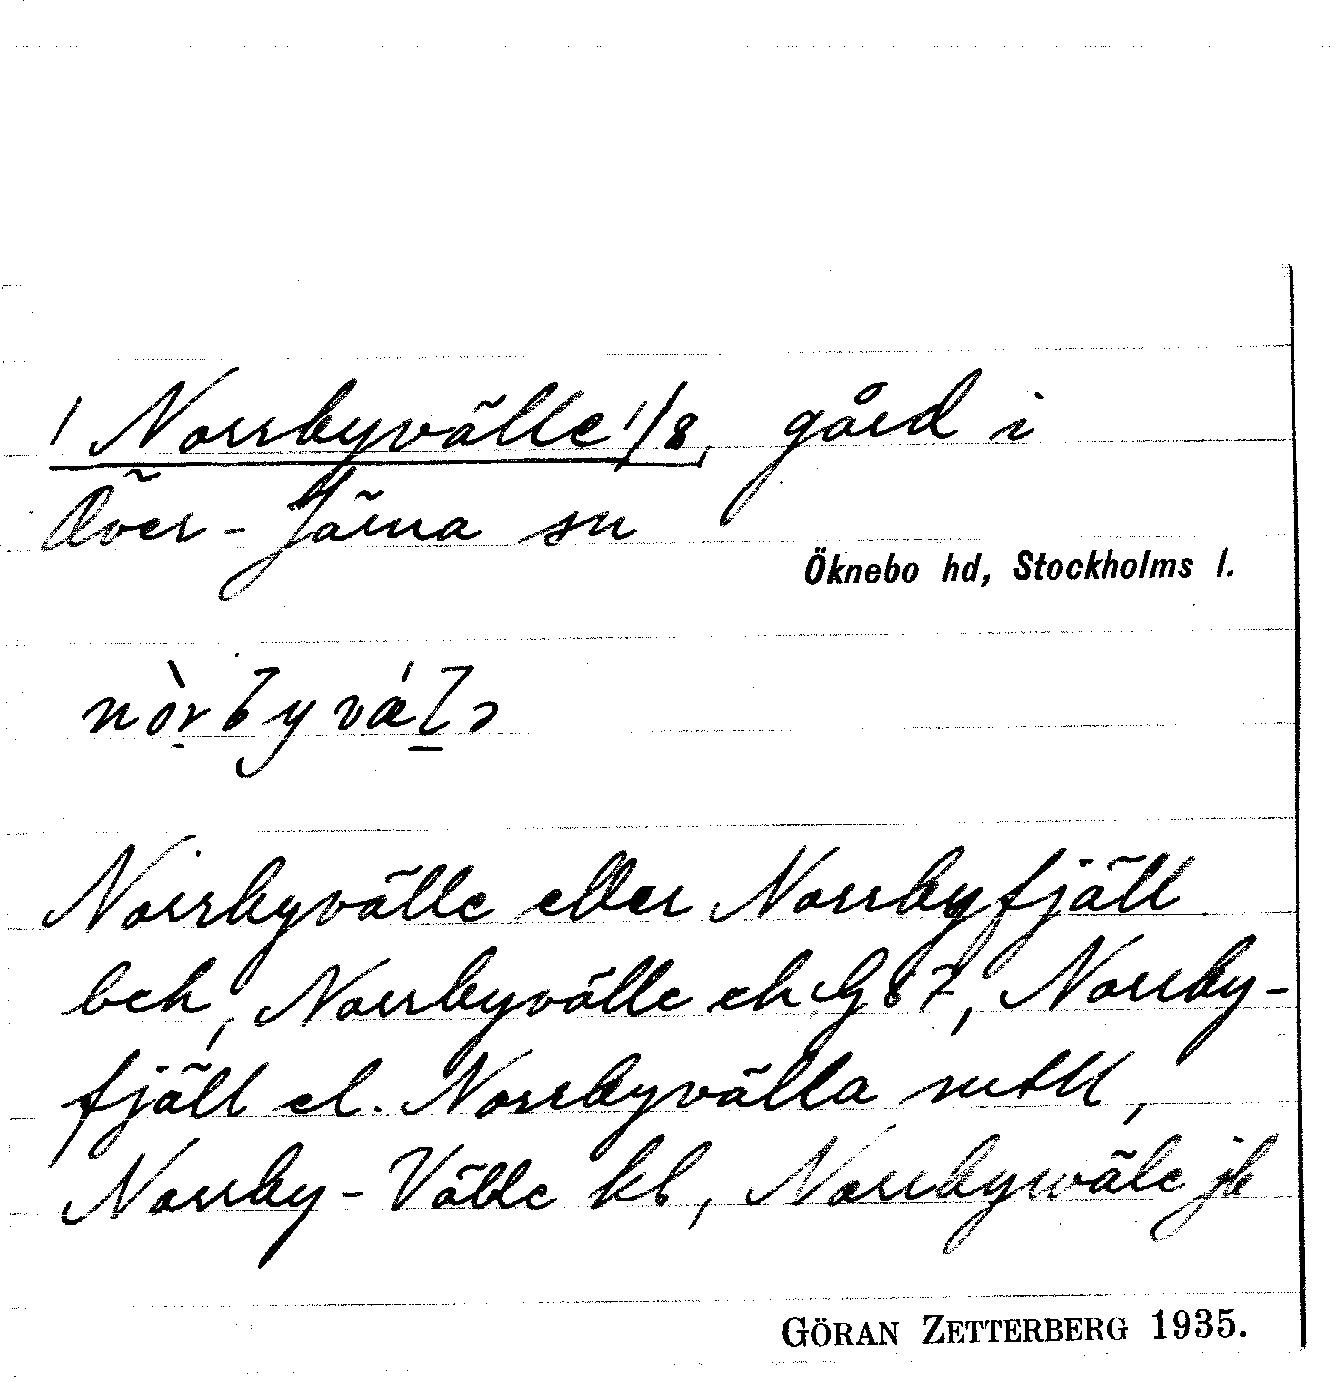 1 Norrbyvälle 1/8, gård i
Över-Järna sn
Öknebo hd, Stockholms l.
Norrbyvälle eller Norrbyfjäll
bek, Norrbyvälle ek G 87, Norrby-
fjäll el. Norrbyvälla mtll,
Norrby-Välle kb, Norrbywäle jb
GÖRAN ZETTERBERG 1935.